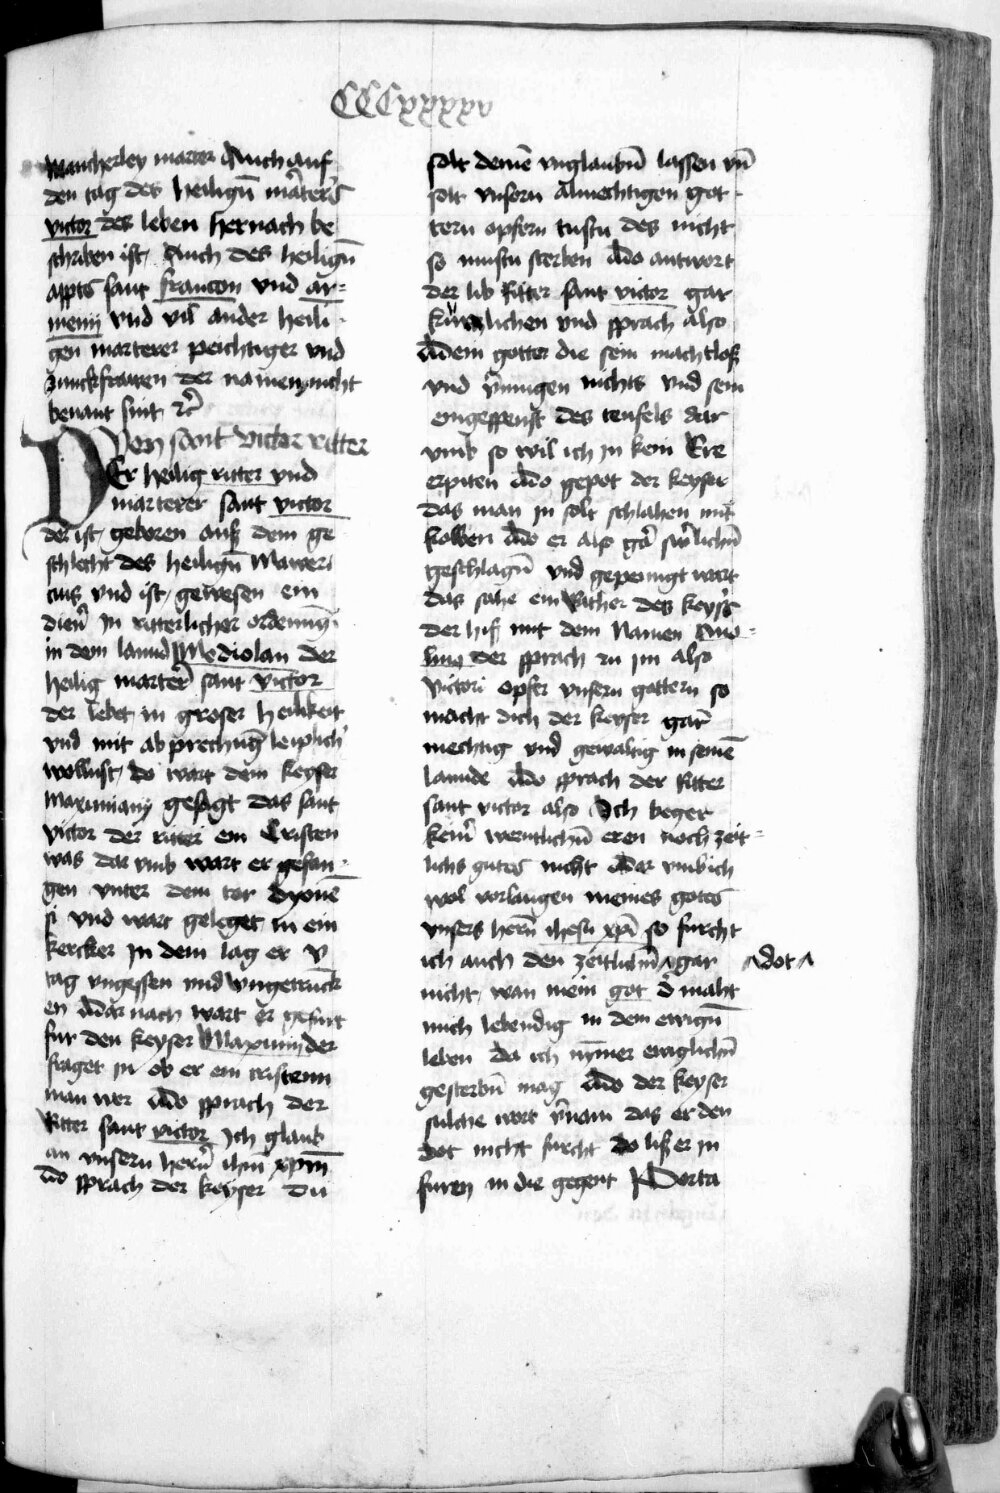 CCCxxxxv
Mancherley marter Auch auf
den tag des heiligen marterers
victor des leben hernach be
schriben ist Auch des heiligen
appts sant francon vnd ar=
menij vnd vil ander heili
gen marterer peichtiger vnd
junckfrawen der namen nicht
benant sint etc
Von sant victor ritter
Der heilig ritter vnd
marterer sant victor
der ist geboren auß dem ge
schlecht des heiligen Mawri
cius vnd ist gewesen ein
diener in ritterlicher ordenung
in dem lannd Mediolan der
heilig marterer sant victor
der lebet in groser heilikeit
vnd mit abprechung leiplicher
wollust do wart dem keyser
Maximiany gesagt das sant
victor der ritter ein Cristen
was dar vmb wart er gefan=
gen vnter dem tor dyone
si vnd wart geleget in ein
kercker In dem lag er v
tag vngessen vnd vngetrunck
en Darnach wart er gefurt
fur den keyser Maximin der
fraget in ob er ein cristenn
man wer Do sprach der
Ritter sant victor Ich glaub
an vnsern hern ihm xpm
Do sprach der keyser Du
solt deinen vnglauben lassen vnd
solt vnsern Almechtigen got
tern opfern tustu des nicht
so mustu sterben Do antwort
der lib Ritter sant victor gar
kunlichen vnd sprach Also
Deinem gotter die sein machtloß
vnd vermugen nichts vnd sein
eingespenst des teufels dar
vmb so wil ich in kein Ere
erpiten Do gepot der keyser
das man in solt schlahen mit
kolben Do er also gar swerlichen
geschlagen vnd gepeinigt wart
das sahe ein Rather des keysers
der hiß mit dem Namen Ano=
linus der sprach zu im also
Victori opfer vnsern gottern so
macht dich der keyser gar
mechtig vnd gewaltig in seinem
lannde Do sprach der Ritter
sant victor also Ich beger
keiner werntlichen eren noch zeit=
lichs gutes nicht Dar vmb ich
wol verlaugen meines gotes
vnsers hern ihesu xpi so furcht
ich auch den zeitlichen ^ gar ^dot^
nicht wan mein got der maht
mich lebendig in dem ewigen
leben da ich nymer ewiglichen
gesterben mag Do der keyser
sulche wort vernam das er den
dot nicht furcht do liß er in
furen in die gegent Porta